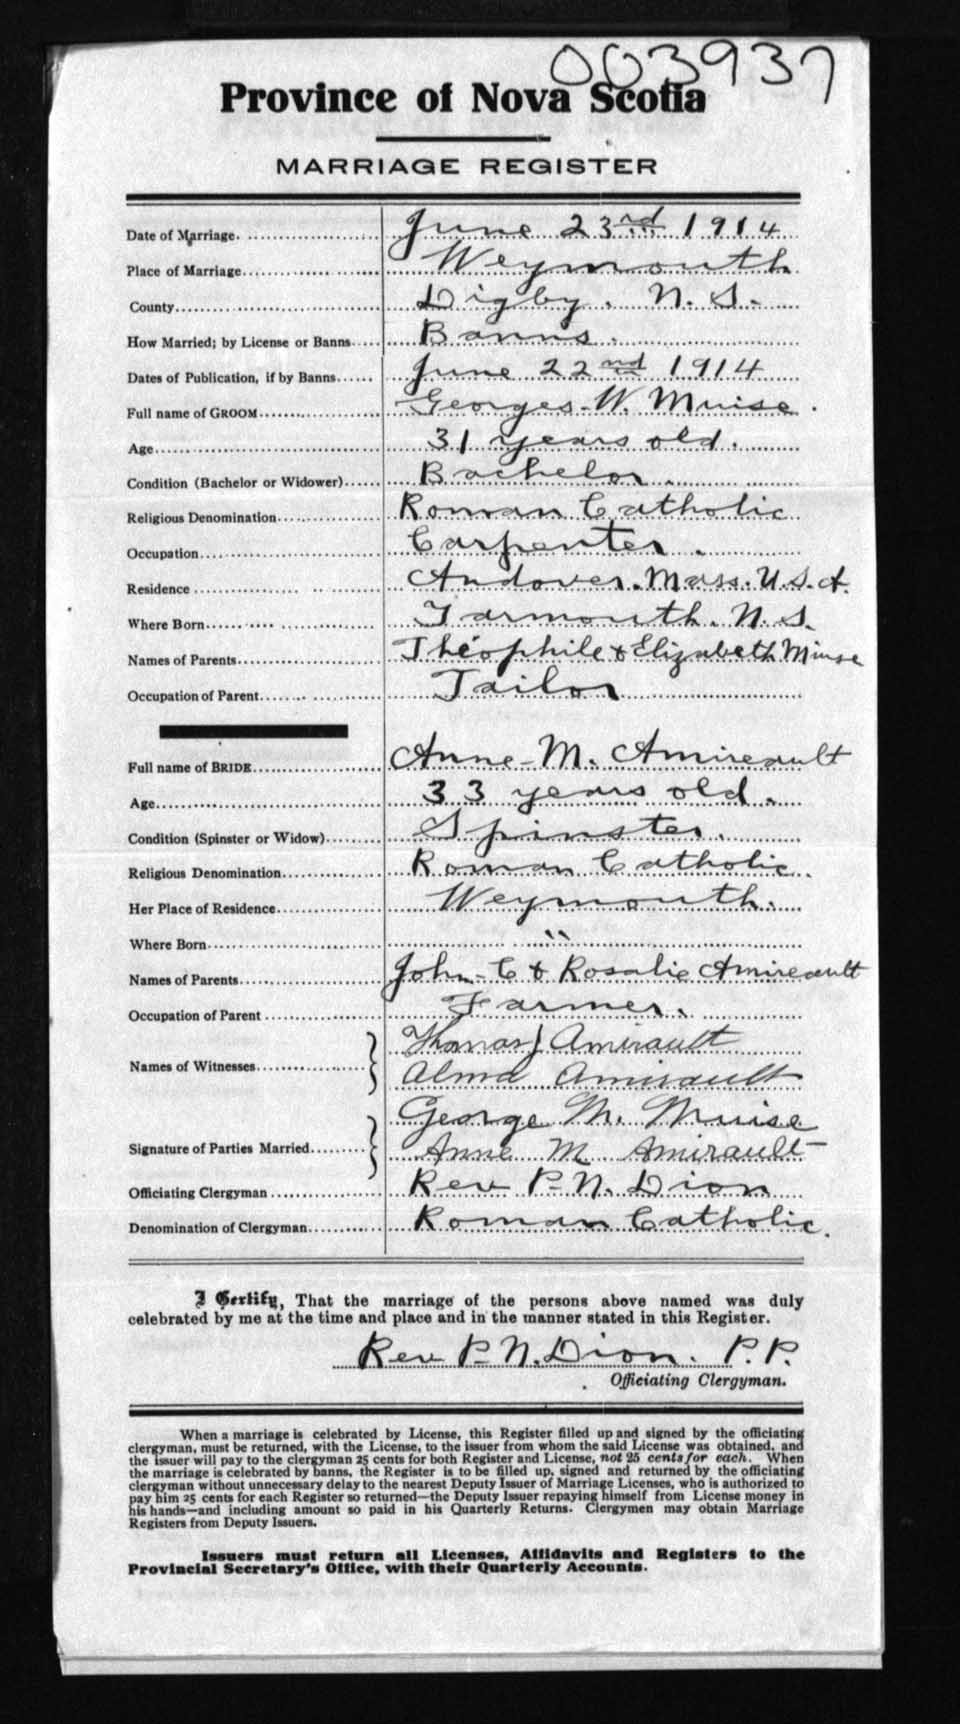 003937
Province of Nova Scotia
MARRIAGE REGISTER
Date of Marriage. June 23rd 1914
Place of Marriage Weymouth
County Digby. N. S.
How Married; by License or Banns Banns.
Dates of Publication, if by Banns June 22nd 1914
Full name of GROOM Georges W. Muise.
Age 31 years old.
Condition (Bachelor or Widower) Bachelor.
Religious Denomination Roman Catholic
Occupation Carpenter.
Residence Andover. Mass. U.S.A.
Where Born Yarmouth. N. S.
Names of Parents Théophile & Elizabeth Muise
Occupation of Parent Tailor
Full name of BRIDE Anne M. Amireault
Age 33 years old.
Condition (Spinster or Widow) Spinster.
Religious Denomination Roman Catholic.
Her Place of Residence Weymouth.
Where Born "
Names of Parents John C & Rosalie Amireault
Occupation of Parent Farmer.
Names of Witnesses Thomas J Amirault
Alma Amirault
George M. Muise
Signature of Parties Married Anne M Amirault
Officiating Clergyman Rev P. N. Dion
Denomination of Clergyman Roman Catholic.
I Certify, That the marriage of the persons above named was duly
celebrated by me at the time and place and in the manner stated in this Register.
Rev P. N. Dion. P. P.
Officiating Clergyman.
When a marriage is celebrated by License, this Register filled up and signed by the officiating
clergyman, must be returned, with the License, to the issuer from whom the said License was obtained, and
the issuer will pay to the clergyman 25 cents for both Register and License, not 25 cents for each. When
the marriage is celebrated by banns, the Register is to be filled up, signed and returned by the officiating
clergyman without unnecessary delay to the nearest Deputy Issuer of Marriage Licenses, who is authorized to
pay him 25 cents for each Register so returned—the Deputy Issuer repaying himself from License money in
his hands—and including amount so paid in his Quarterly Returns. Clergymen may obtain Marriage
Registers from Deputy Issuers.
Issuers must return all Licenses, Affidavits and Registers to the
Provincial Secretary's Office, with their Quarterly Accounts.